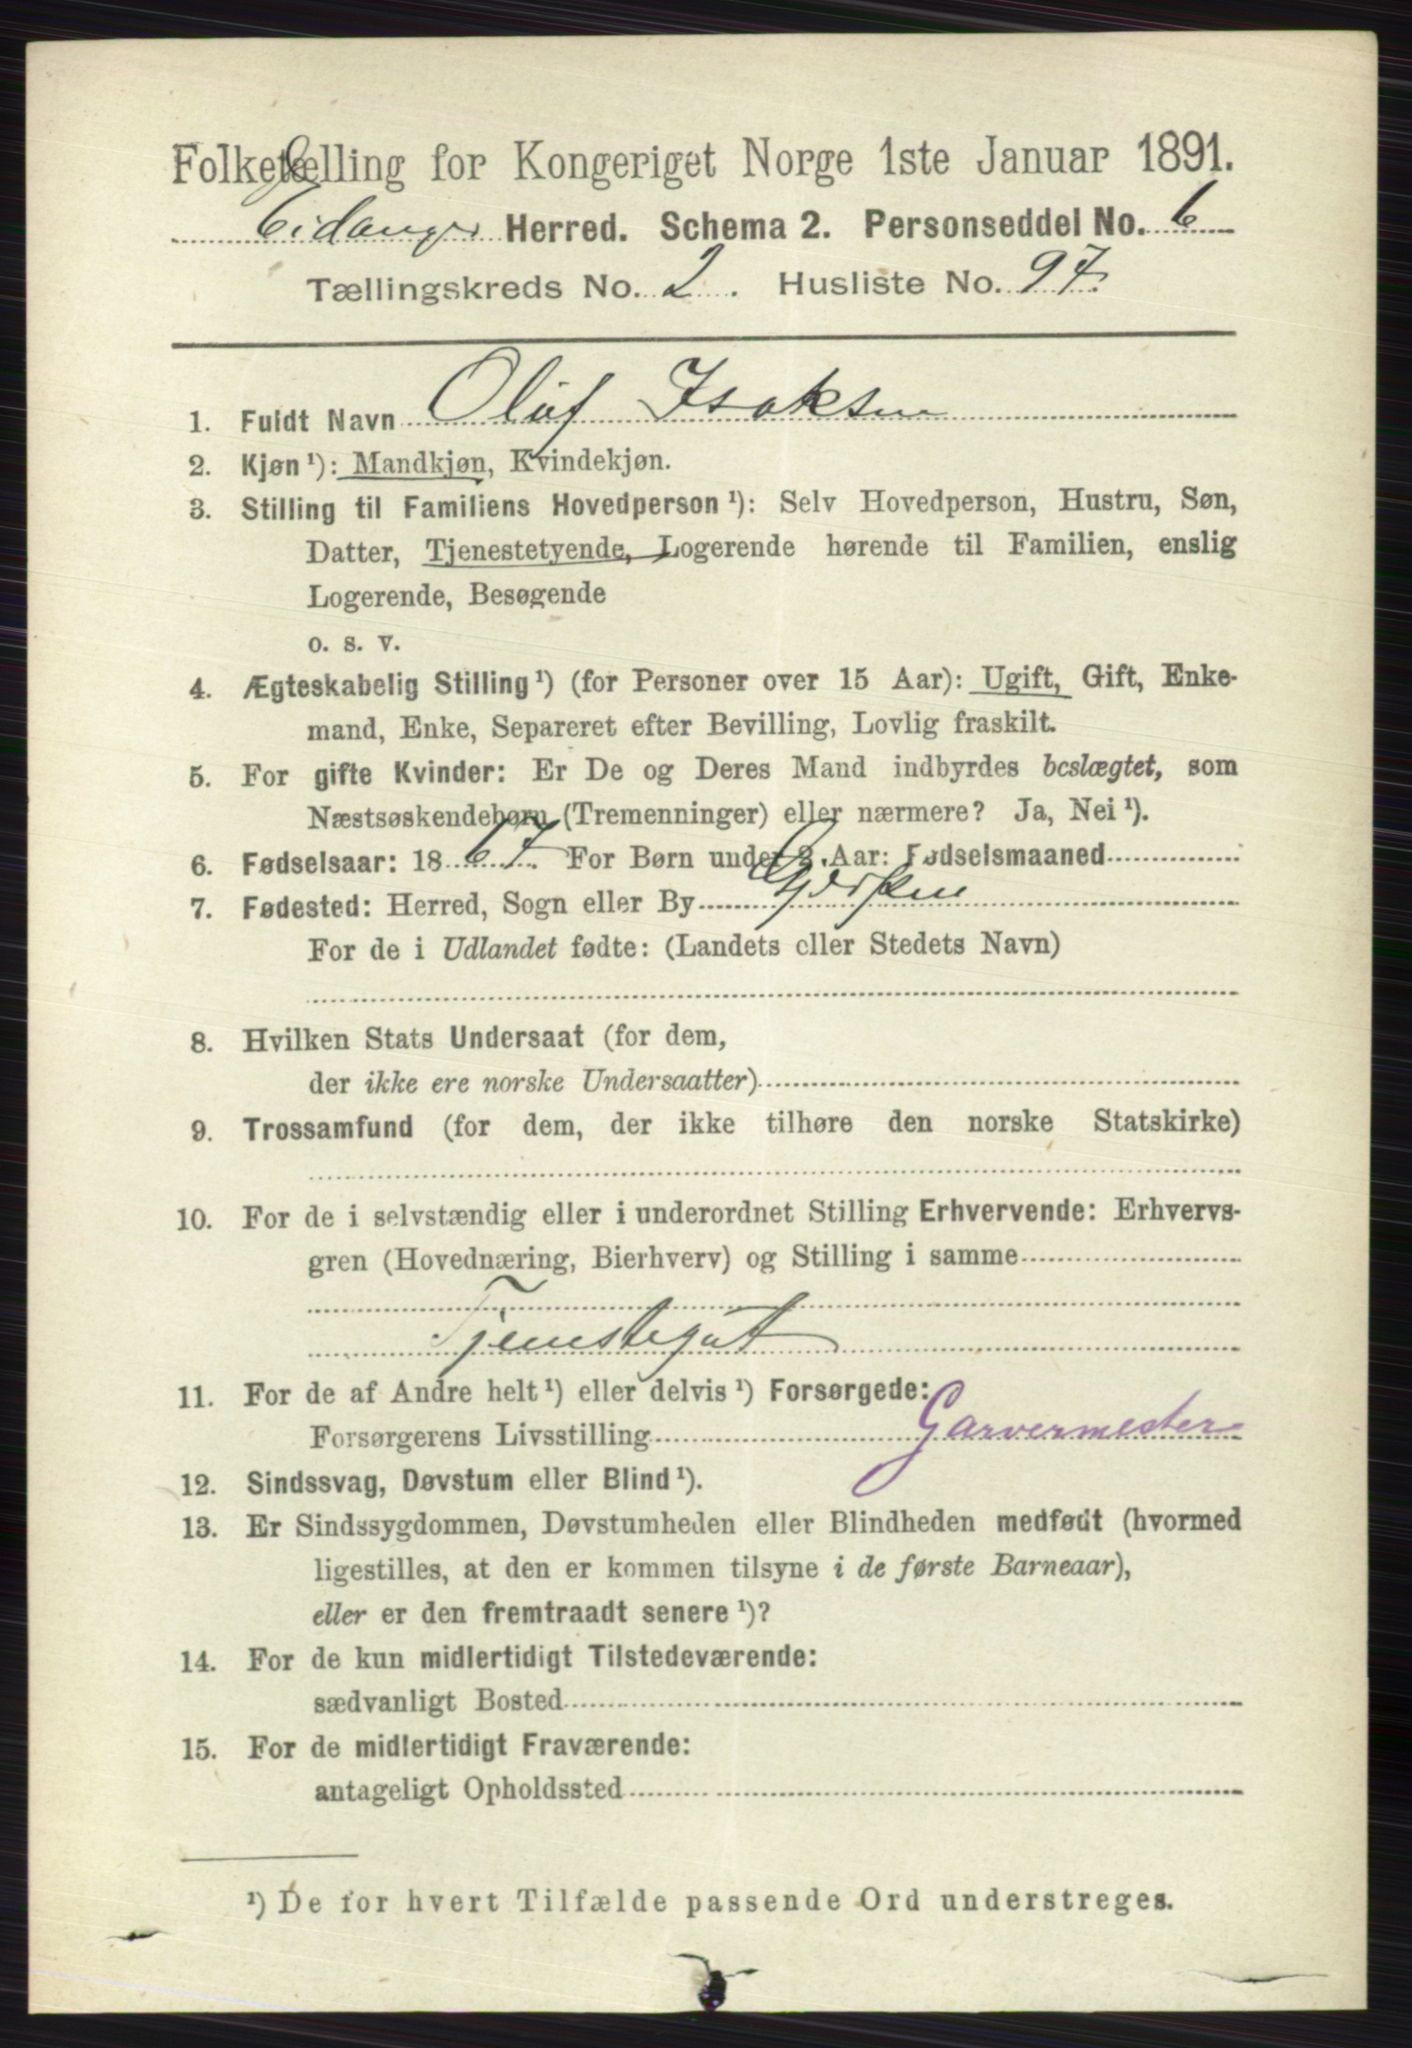 Folketælling for Kongeriget Norge 1ste Januar 1891.
Eidanger Herred. Schema 2. Personseddel No. 6
Tællingskreds No. 2. Husliste No. 97.
1. Fuldt Navn Oluf Isaksen
2. Kjøn ¹): Mandkjøn, Kvindekjøn.
3. Stilling til Familiens Hovedperson ¹): Selv Hovedperson, Hustru, Søn,
Datter, Tjenestetyende, Logerende hørende til Familien, enslig
Logerende, Besøgende
o. s. v.
4. Ægteskabelig Stilling ¹) (for Personer over 15 Aar): Ugift, Gift, Enke-
mand, Enke, Separeret efter Bevilling, Lovlig fraskilt.
5. For gifte Kvinder: Er De og Deres Mand indbyrdes beslægtet, som
Næstsøskendebørn (Tremenninger) eller nærmere? Ja, Nei ¹).
6. Fødselsaar: 1867. For Børn under 2 Aar: Fødselsmaaned
7. Fødested: Herred, Sogn eller By Gjerpen
For de i Udlandet fødte: (Landets eller Stedets Navn)
8. Hvilken Stats Undersaat (for dem,
der ikke ere norske Undersaatter)
9. Trossamfund (for dem, der ikke tilhøre den norske Statskirke)
10. For de i selvstændig eller i underordnet Stilling Erhvervende: Erhvervs-
gren (Hovednæring, Bierhverv) og Stilling i samme
Tjenestegut
11. For de af Andre helt ¹) eller delvis ¹) Forsørgede:
Forsørgerens Livsstilling Garvermester
12. Sindssvag, Døvstum eller Blind ¹).
13. Er Sindssygdommen, Døvstumheden eller Blindheden medfødt (hvormed
ligestilles, at den er kommen tilsyne i de første Barneaar),
eller er den fremtraadt senere ¹)?
14. For de kun midlertidigt Tilstedeværende:
sædvanligt Bosted
15. For de midlertidigt Fraværende:
antageligt Opholdssted
¹) De for hvert Tilfælde passende Ord understreges.